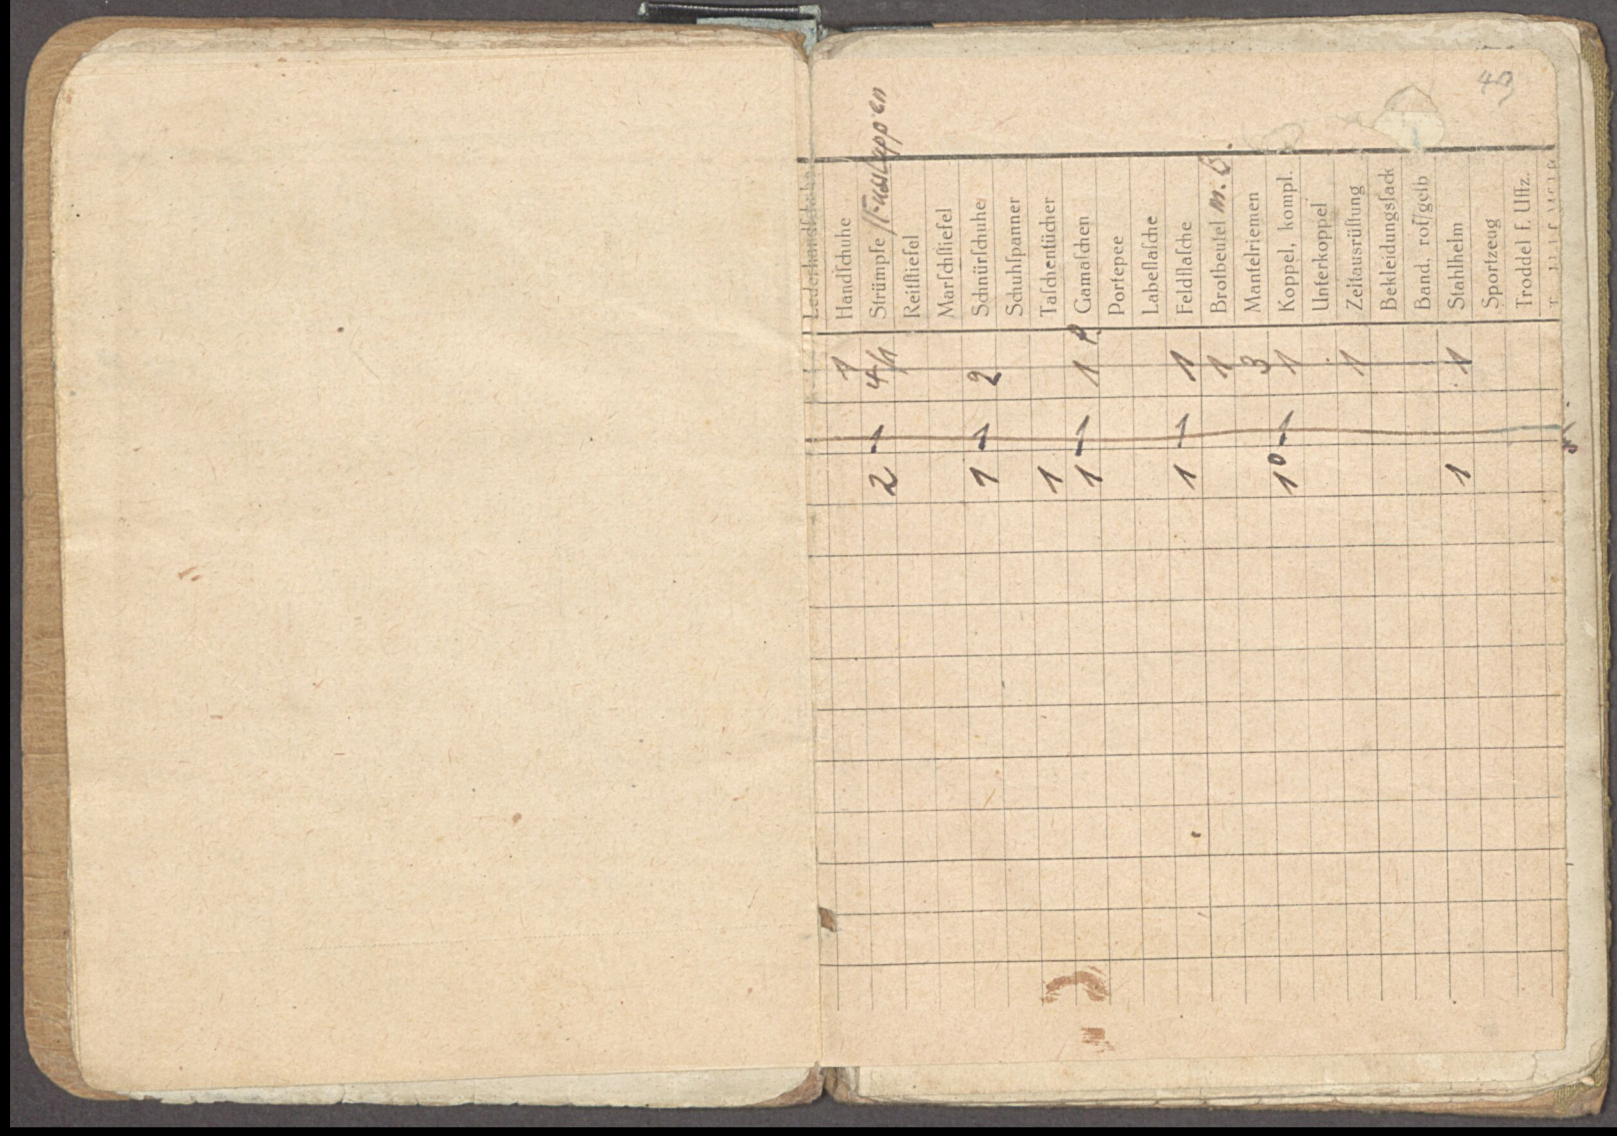 43
Lederhandſchuhe
Handſchuhe 1
Strümpfe /Fusslappen 4/1 2
Reitſtiefel
Marſchſtiefel
Schnürſchuhe 2 1
Schuhſpanner
Taſchentücher 1
Gamaſchen 1 P. 1
Portepee
Labeflaſche
Feldflaſche 1 1
Brotbeutel m. B. 1
Mantelriemen 3
Koppel, kompl. 1 10
Unterkoppel
Zeltausrüſtung 1
Bekleidungsſack
Band, rot/gelb
Stahlhelm 1 1
Sportzeug
Troddel f. Uffz.